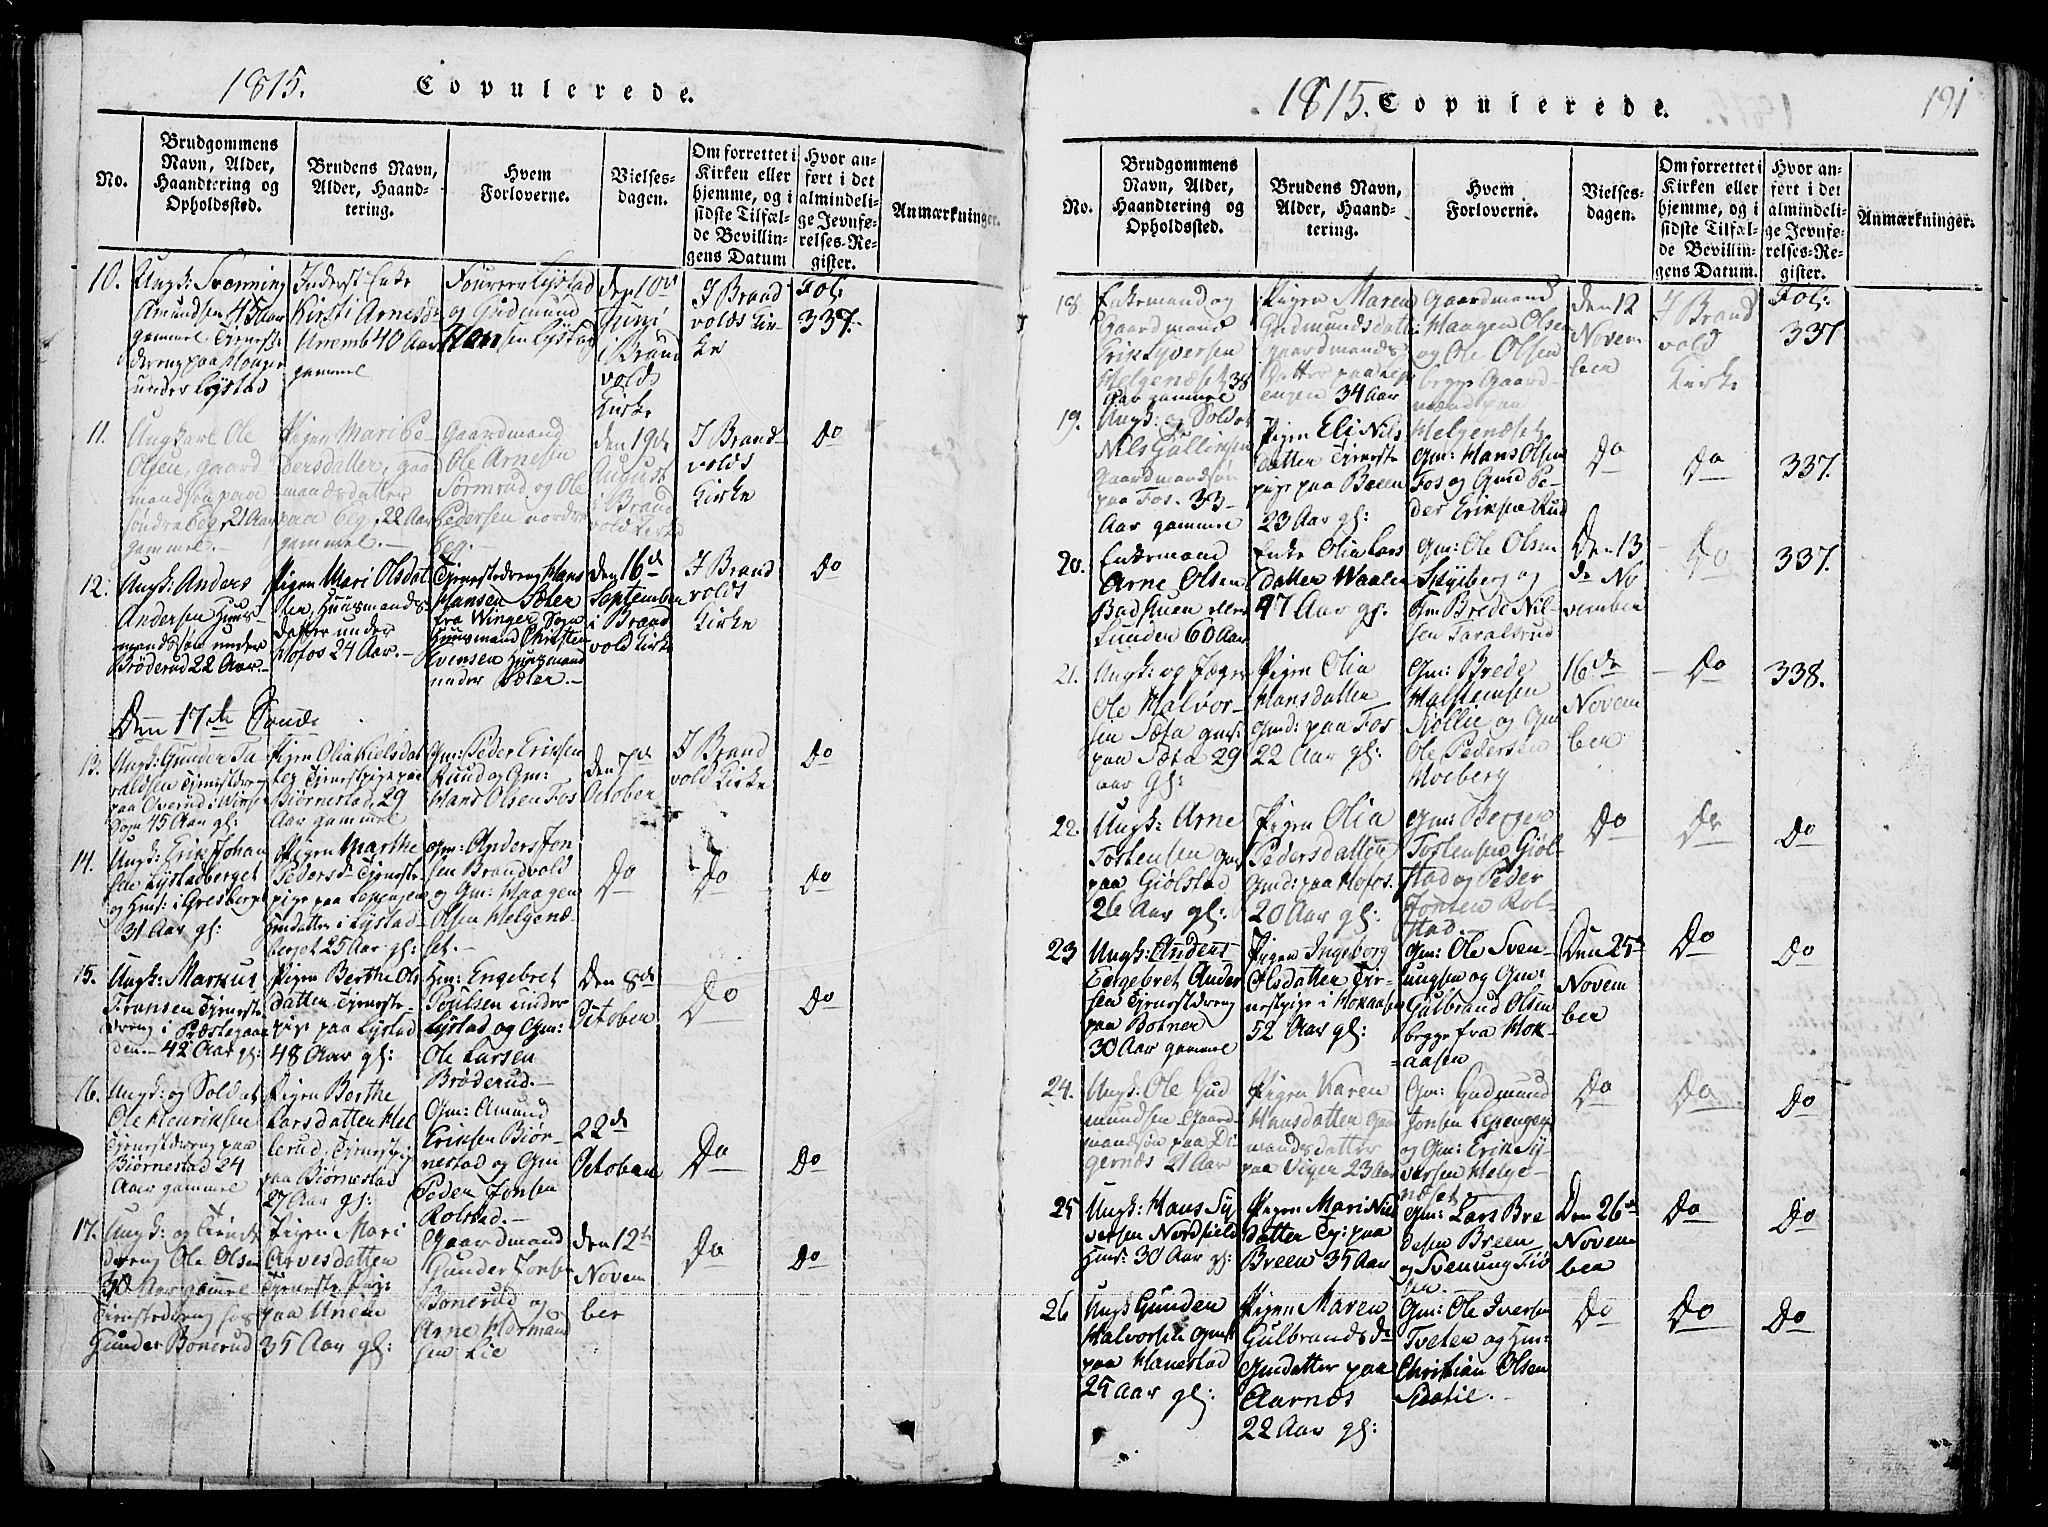 1815. Copulerede.
No.
Brudgommens
Navn, Alder,
Haandtering og
Opholdssted.
Brudens Navn,
Alder, Haand-
tering.
Hvem
Forloverne.
Vielses-
dagen.
Om forrettet i
Kirken eller
hjemme, og i
sidste Tilfæl-
de Bevillin-
gens Datum
Hvor an-
ført i det
almindeli-
ge Jevnfø-
relses-Re-
gister.
Anmærkninger.
10.
Ungk: Svenning
Amundsen 45 Aar
gammel Tieneste
dreng paa
under Lystad
Inderst Enke
Kirsti Arnesd:
40 Aar
gammel
Foureer Lystad
og Gudmund
Hansen Lystad
den 10de
Juni
i Brand
volds
Kirke
I Brand
volds Kir-
ke
Fol:
337.
11.
Ungkarl Ole
Olsen, gaard
mandsøn paa
søndre Beg, 21 Aar
gammel.
Pigen Mari Pe-
dersdatter, gaa
mandsdatter
paa Beg, 22 Aar
gammel.
Gaardmand
Ole Arnesen
Sormrud og Ole
Pedersen nordre
Beg.
den 19de
August
i Brand
vold Kirke
I Brand-
volds
Kirke
Do
12.
Ungk: Anders
Andersen Huus-
mandssøn under
Brøderud 22 Aar.
Pigen Mari Olsdat
ter, Huusmands-
datter under
Nofos 24 Aar.
Tienestedreng Hans
Hansen Sæter
fra Winger Sogn
Huusmand Christen
Svensen Huusmand
under Sæter.
den 16de
September
i Brand
vold Kirke
I Brand
volds
Kirke
Do
Den 17de Søndag
13.
Ungk: Gunder Ta
raldsen Tienestdreng
paa Overud i Winger
Sogn 45 Aar gl:
Pigen Olia Nielsdat
ter Tienestpige paa
Biørnestad, 29
Aar gammel
Gm: Peder Eriksen
Ruud og Gm:
Hans Olsen Fos
den 7de
October
I Brand
vold Kirke
Do
14.
Ungk: Erik Johan
sen Lystadberget
og Huus: i Gresberget
31 Aar gl:
Pigen Marthe
Pedersd: Tieneste
pige paa Leppengen
Hmdatter i Lystad
berget 25 Aar gl:
Gm: Anders Jon
sen Brandvold
og Gm: Haagen
Olsen Helgenæ-
set.
Do
Do
Do
15.
Ungk: Markus
Fransen Tieneste
dreng i Præstegaar
den. 42 Aar gl:
Pigen Berthe Ols
datter Tieneste-
pige paa Lystad
48 Aar gl:
Hm: Engebret
Poulsen under
Lystad og Gm:
Ole Larsen
Brøderud.
Den 8de
October
Do
Do
16.
Ungk: og Soldat
Ole Henriksen
Tienestdreng paa
Biørnestad 24
Aar gammel
Pigen Berthe
Larsdatter Hel
lerud, Tienestpig
paa Biørnestad
27 Aar gl:
Gm: Amund
Eriksen Biør-
nestad og Gm
Peder Jonsen
Rolstad.
22de
October
Do
Do
17.
Ungk: og Tieneste
dreng Ole Olsen
30 Aar gammel
Tienestedreng hos
Gunder Bonerud
Pigen Mari
Arvesdatter
Tieneste Pige
paa Unem
35 Aar gl:
Gaardmand
Gunder Jonsen
Bonerud og
Arne Herman
sen Lie
den 12te
Novem
ber
Do
Do
1815. Copulerede.
191
No.
Brudgommens
Navn, Alder,
Haandtering og
Opholdssted.
Brudens Navn,
Alder, Haand-
tering.
Hvem
Forloverne.
Vielses-
dagen.
Om forrettet i
Kirken eller
hjemme, og i
sidste Tilfæl-
de Bevillin-
gens Datum.
Hvor an-
ført i det
almindeli-
ge Jevnfø-
relses-Re-
gister.
Anmærkninger.
18.
Enkemand og
Gaardmand
Erik Syversen
Helgenæset, 38
Aar gammel
Pigen Maren
Gudmundsdatte
gaardmands
Datter paa Lep
engen 34 Aar
Gaardmand
Haagen Olsen
og Ole Olsen
begge Gaard-
mænd paa
Helgenæset
den 12
Novem
ber
I Brand
vold
Kirke
Fol:
337
19.
Ungk: og Soldat
Nils Gullinsen
Gaardmandsøn
paa Fos. 33
Aar gammel
Pigen Eli Nils
datter Tieneste
pige paa Breen
23 Aar gl:
Gm: Hans Olsen
Fos og Gmd Pe-
der Eriksen Rud
Do
Do
337.
20.
Enkemand
Arne Olsen
Badstuen eller
Lunden 60 Aar
Enke Olia Lars
datter Waaler
47 Aar gl:
Gm: Ole Olsen
Skyeberg og
Hm Brede Nil-
sen Taralsrud
Den 13
de No
vember
Do
337.
21.
Ungk: og Jæger
Ole Halvor-
sen Sæta gms:
paa Sæta 29
aar gl:
Pigen Olia
Hansdatter
Gmd: paa Fos
22 Aar gl:
Gm: Brede
Halstensen
Nollie og Gm
Ole Pedersen
Hoeberg
16de
Novem
ber
Do
338.
22.
Ungk: Arne
Tostensen Gms
paa Giølstad
26 Aar gl:
Pigen Olia
Pedersdatter
Gmd: paa Nofos.
20 Aar gl:
Gm: Berger
Tostensen Giøl-
stad og Peder
Jonsen Rol-
stad.
Do
Do
Do
23
Ungk: Anders
Engebret Ander
sen Tienestdreng
paa Botner
30 Aar gammel
Pigen Ingeborg
Olsdatter Tie-
nestpige i Mokaasen
52 Aar gl:
Gm: Ole Sven-
ungsen og Gm:
Gulbrand Olsen
begge fra Mok-
aasen
Den 25de
Novem
ber
Do
Do
24.
Ungk: Ole Gud
mundsen Gaard
mandsøn paa Di-
gernæs 21 Aar
Pigen Karen
Hansdatter Gaa
mandsdatter
paa Viger 23 Aar
Gm: Gudmund
Jonsen Lepengen
og Gm: Erik Sy-
versen Helge-
næset
Do
Do
Do
25
Ungk: Hans Sy
versen Nordfield
Hms: 30 Aar gl:
Pigen Mari Nils
datter Tj: paa
Breen 35 Aar
Gm: Lars Bre
desen Breen
og Svenung Tiø
Den 26de
Novem
ber
Do
Do
26
Ungk Gunder
Halvorsen Gmst
paa Hanestad
25 Aar gl:
Pigen Maren
Gulbrandsdr
Gmdatter paa
Aarnæs
22 Aar gl:
Gm: Ole Iversen
Tveter og Hm:
Christian Olsen
Do
Do
Do